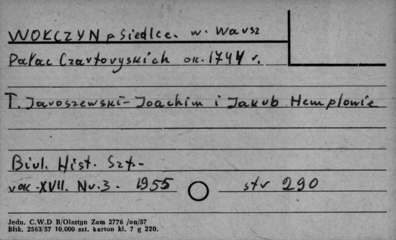 WOŁCZYN p Siedlce. w. Warsz
Pałac Czartoryskich ok. 1744 r.
T. Jaroszewski - Joachim i Jakub Hemplowie
Biul. Hist. Szt -
rok - XVII. Nr. 3. 1955 str 290
Jedn. C.W.D B/Olsztyn Zam 2776 /on/57
Bltk. 2563/57 10.000 szt. karton kl. 7 g 220.